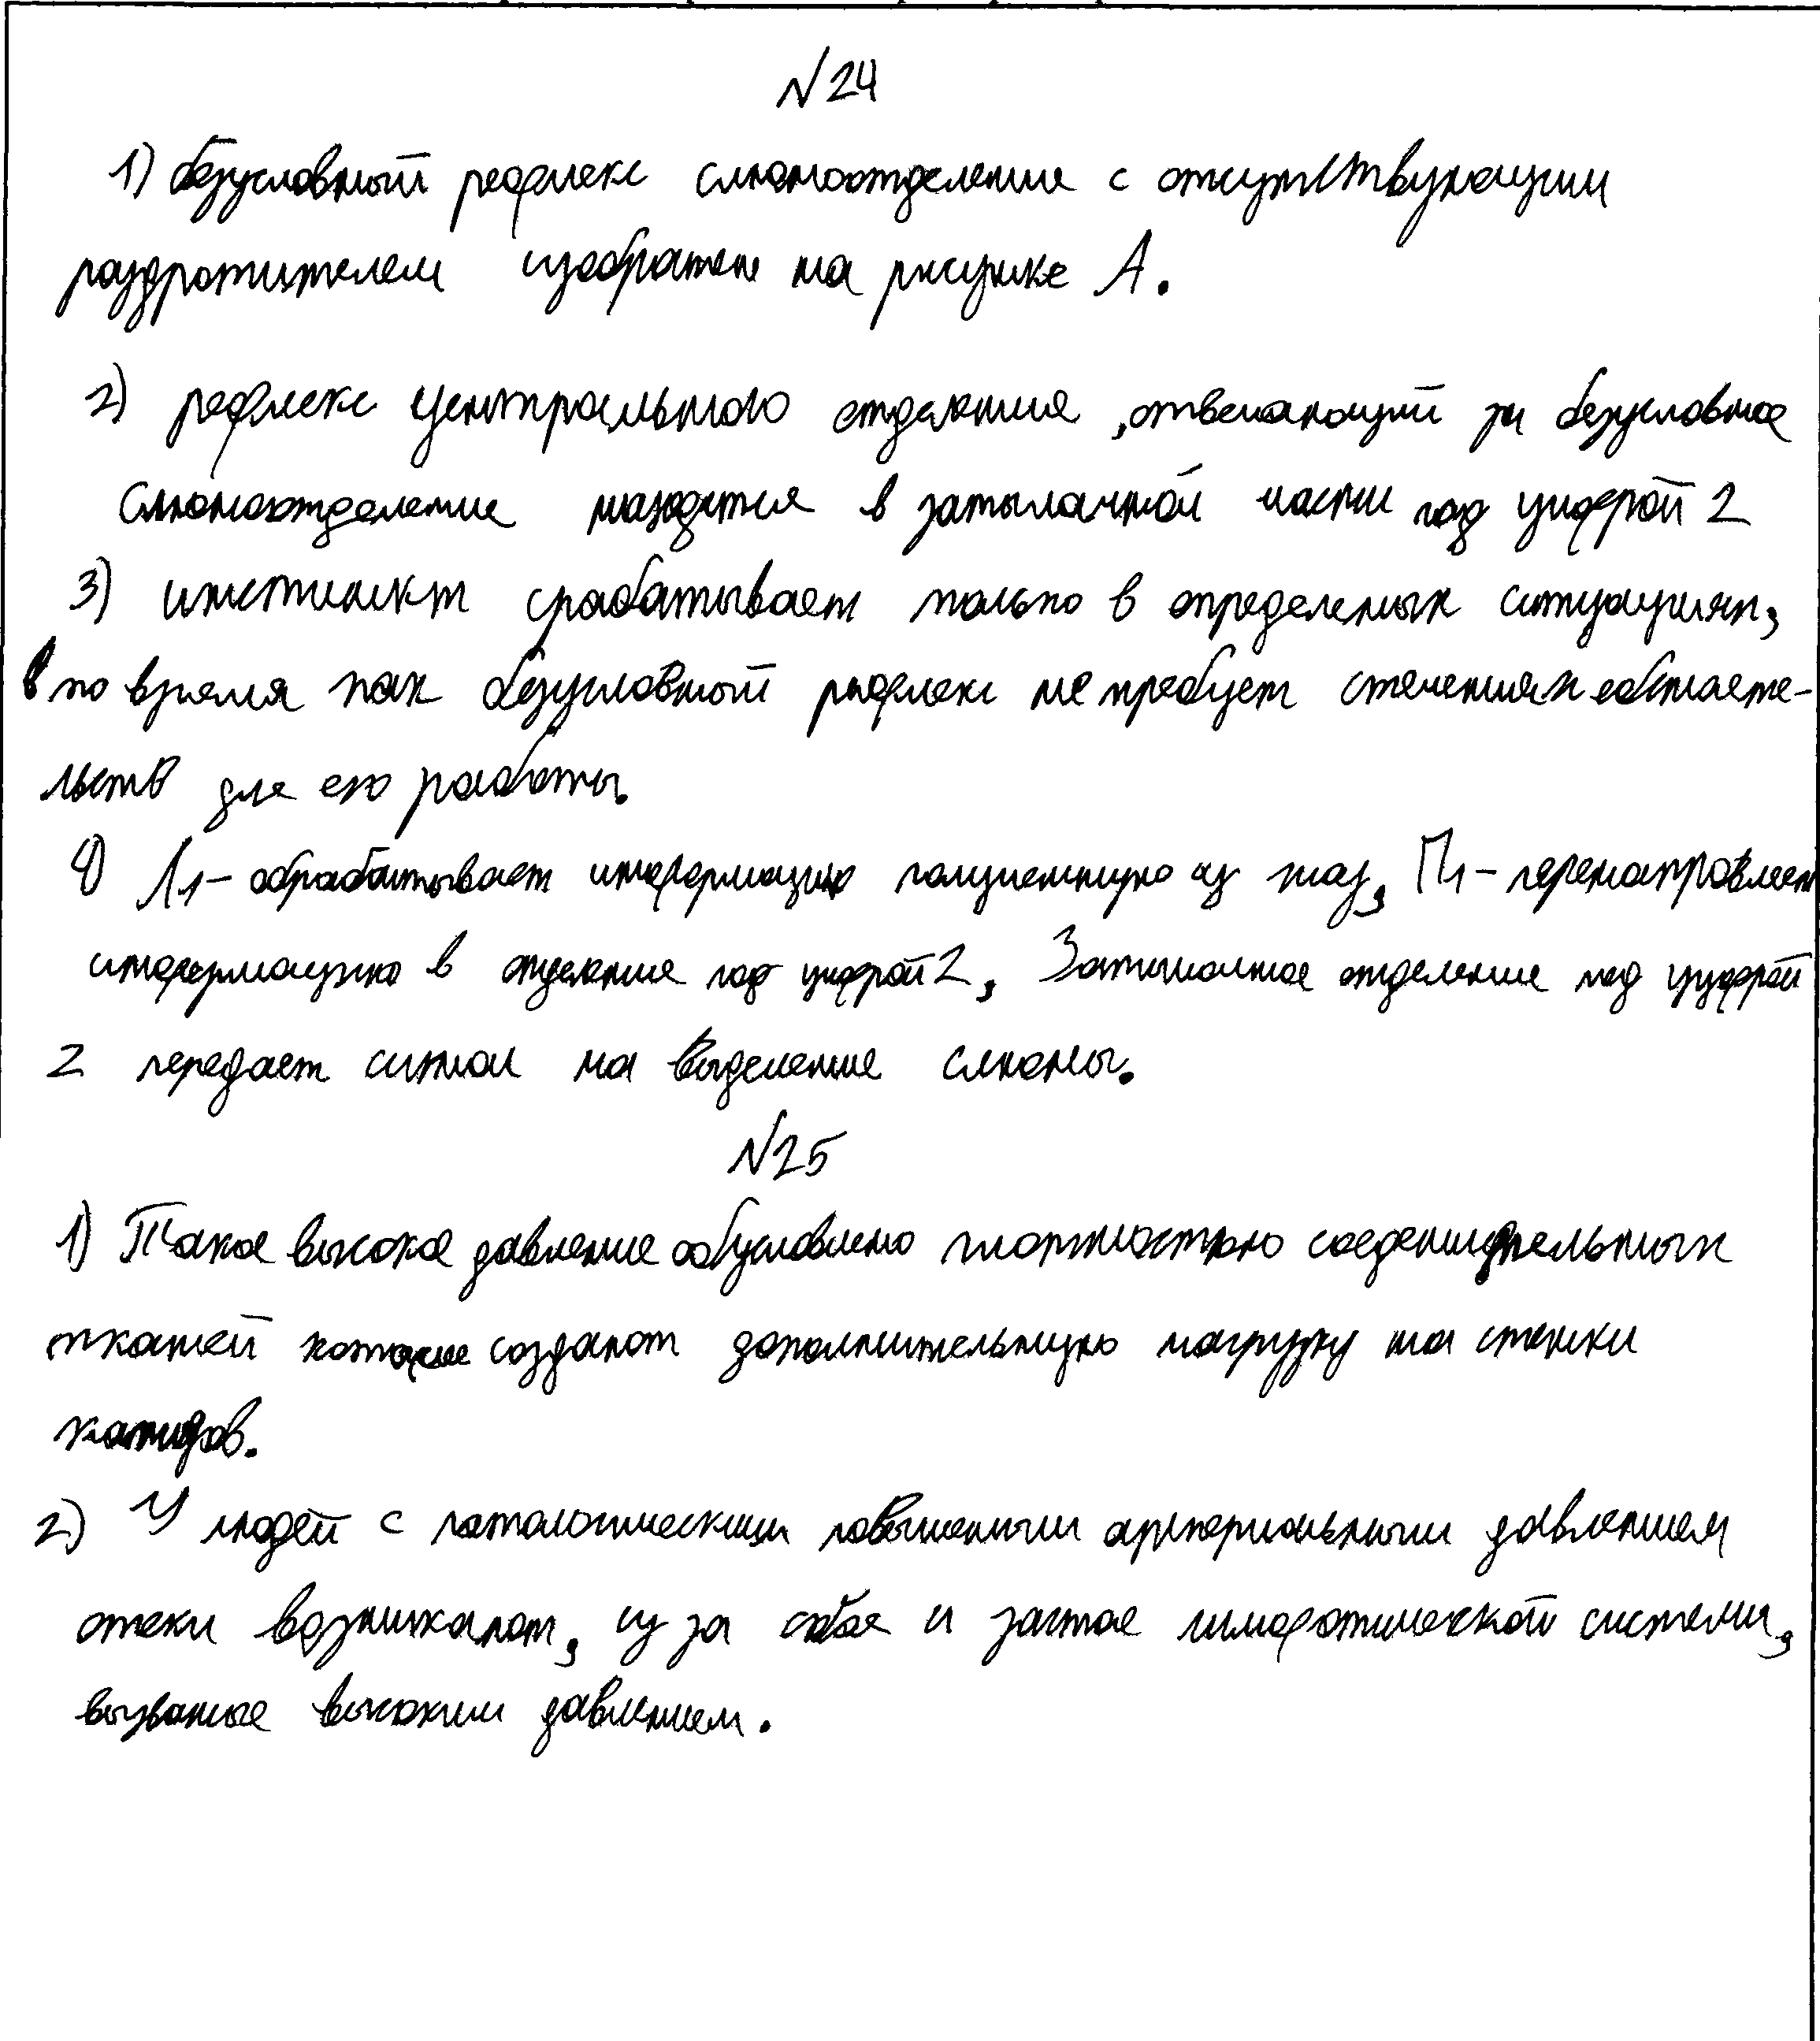 №24
1) безусловный рефлекс слюноотделение с отсутствующим
раздрожителем изображен на рисунке А.
2) рефлекс центрального отделения, отвечающий за безусловное
слюноотделение находится в затылочной части под цифрой 2
3) инстинкт срабатывает только в определеных ситуациях,
в то время как безусловный рефлекс не требует стечениях обстаете-
льств для его работы.
4) Л1 – обрабатывает информацию полученную из глаз, П1 – перенаправляет
информацию в отделение под цифрой 2, Затылочное отделение под цифрой
2 передает сигнал на выделение слюны.
№25
1) Такое высокое давление обусловлено плотностью соеденительных
тканей которые создают дополнительную нагрузку на стенки
2) У людей с патологическим повышенным артериальным давлением
отеки возникают, из за сбоя и застоя лимфотической системы,
вызваные высоким давлением.